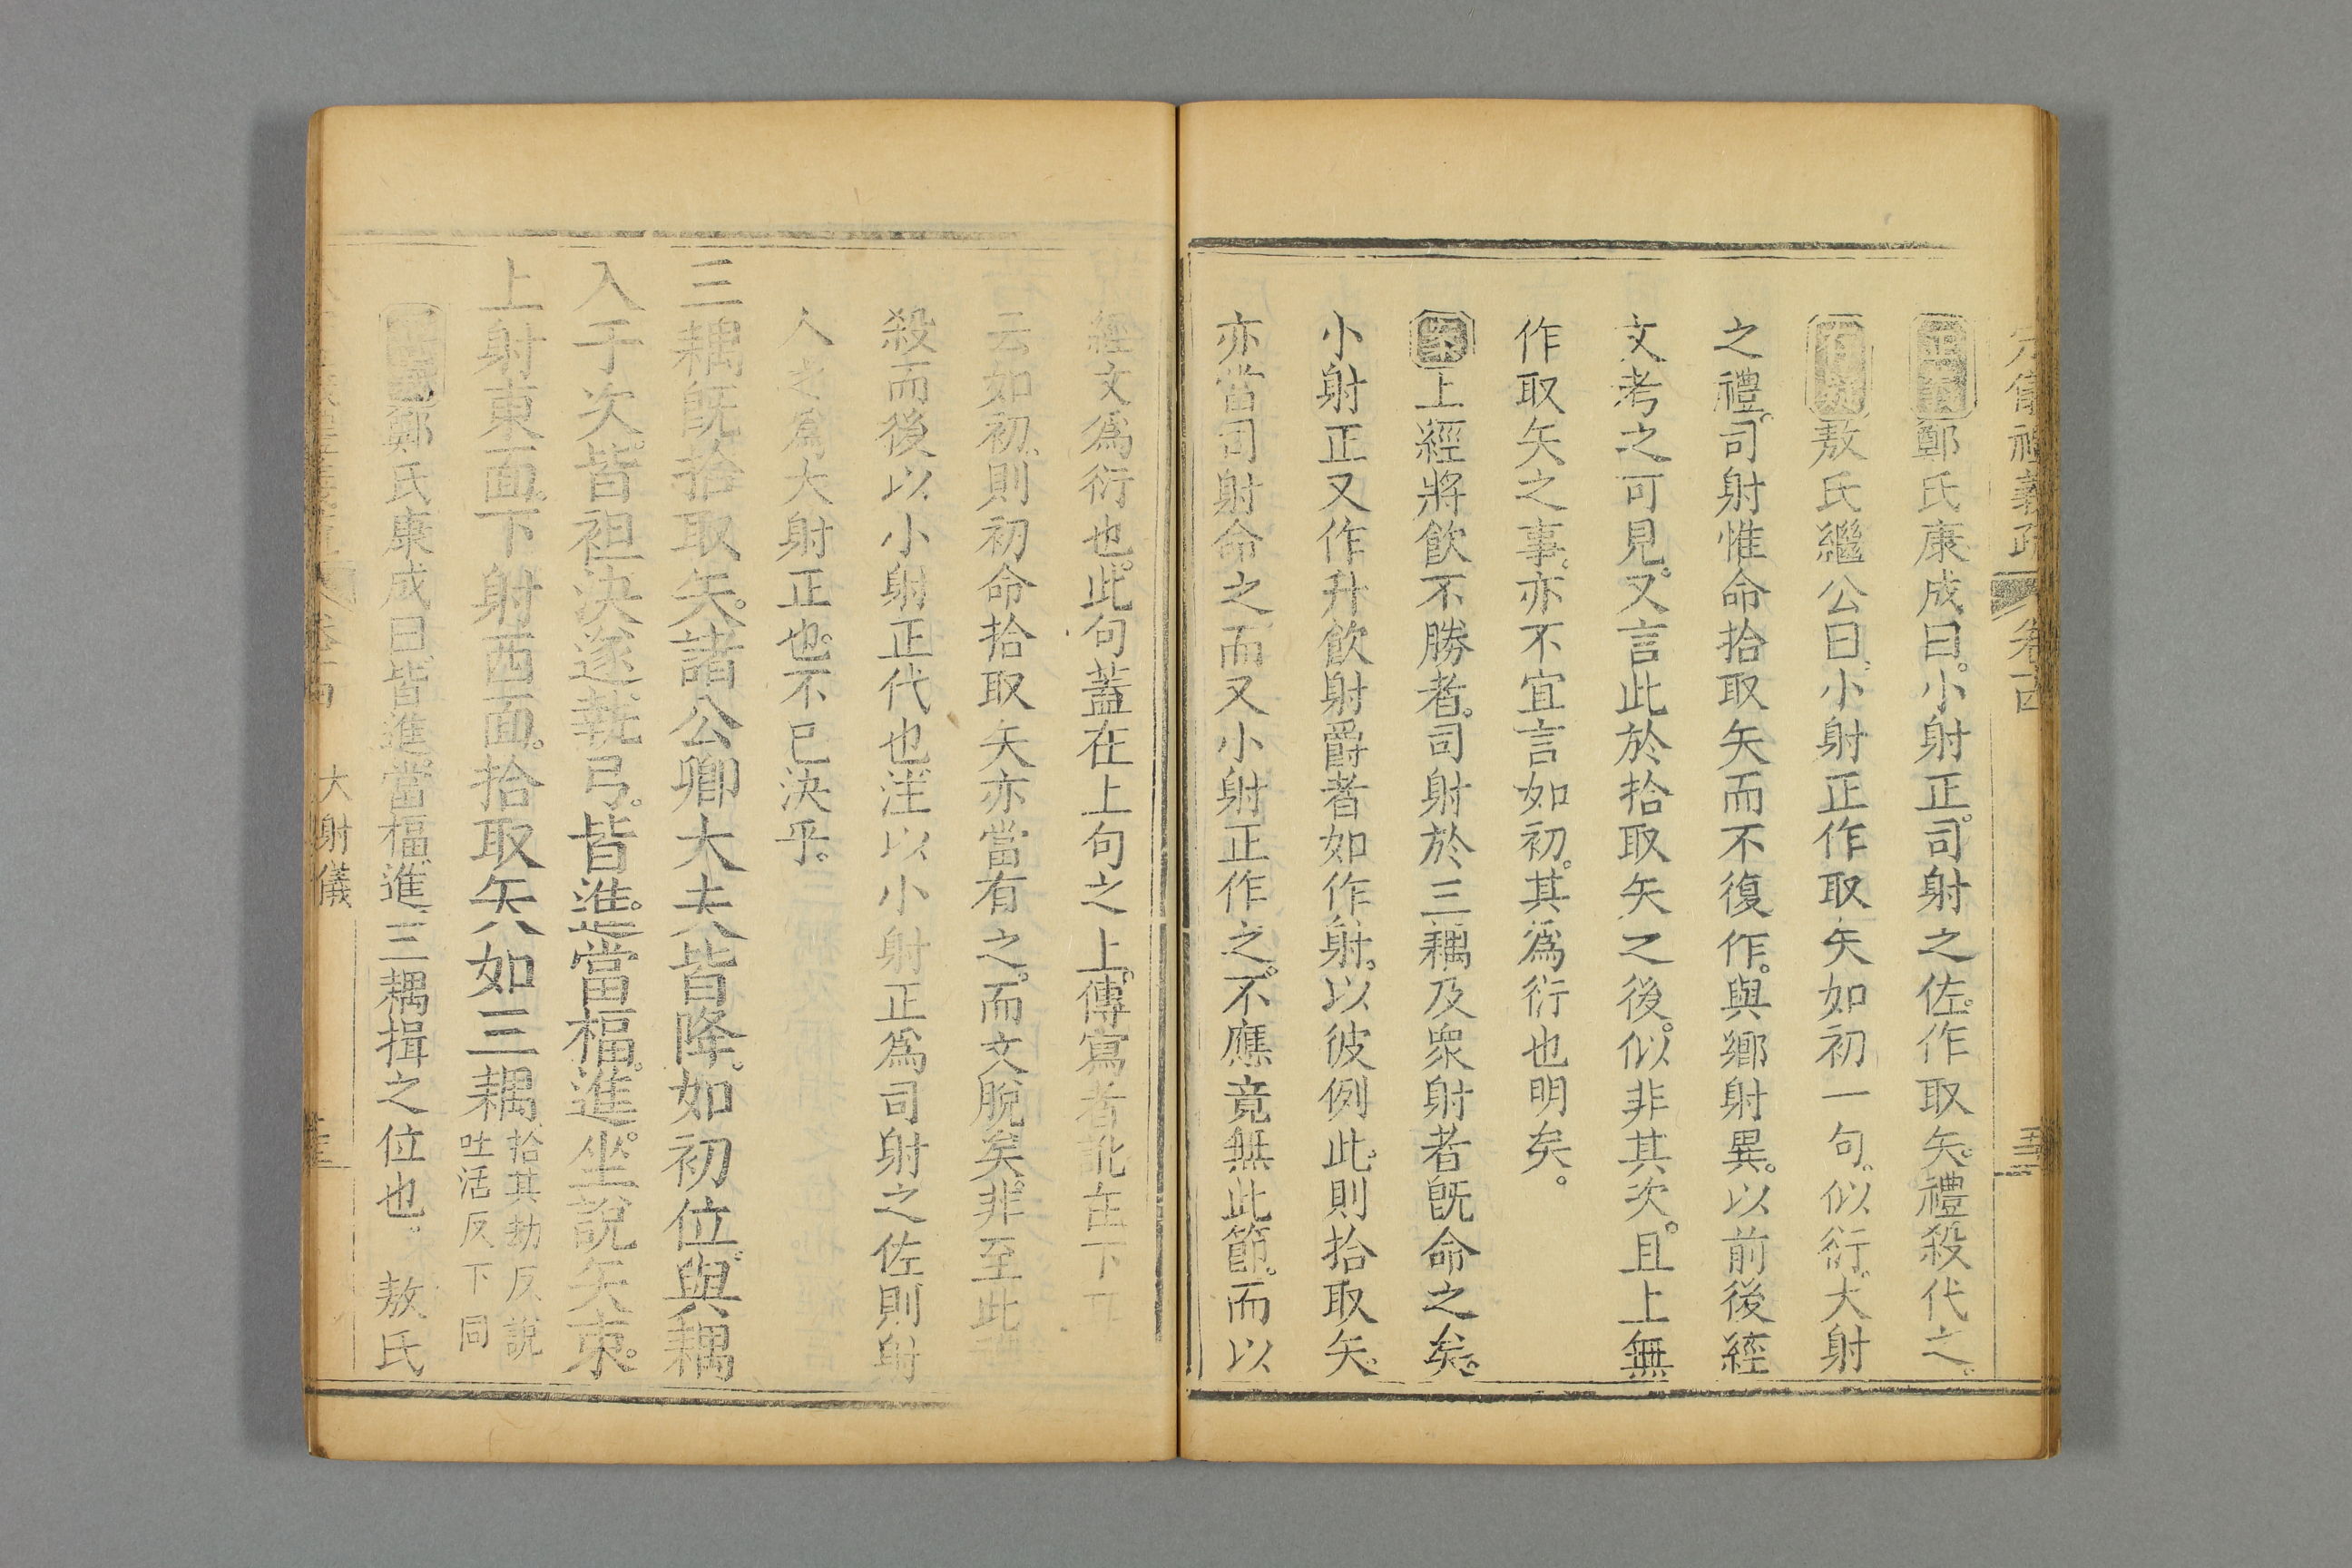 儀禮義疏 卷
正義鄭氏康成曰。小射正。司射之佐。作取矢。禮殺代之。
存疑敖氏繼公曰。小射正作取矢如初一句。似衍。大射
之禮。司射惟命拾取矢而不復作。與鄉射異。以前後經
文考之可見。又言此於拾取矢之後。似非其次。且上無
作取矢之事。亦不宜言如初。其為衍也明矣。
案上經將飲不勝者。司射於三耦及衆射者既命之矣。
小射正又作升飲射爵者如作射。以彼例此。則拾取矢。
亦當司射命之。而又小射正作之。不應竟無此節。而以
經文為衍也。此句蓋在上句之上。傳寫者訛在下耳
云如初。則初命拾取矢亦當有之。而文脫矣。非至此
殺而後以小射正代也。注以小射正為司射之佐則射
人之為大射正也。不已決乎。
三耦既拾取矢。諸公卿大夫皆降。如初位。與耦
入于次。皆袒決遂執弓。皆進。當楅。進坐。說矢束。
上射東面。下射西面。拾取矢。如三耦。拾其劫反說
吐活反下同
正義鄭氏康成曰。皆進當楅。進。三耦揖之位也。 敖氏
大射儀